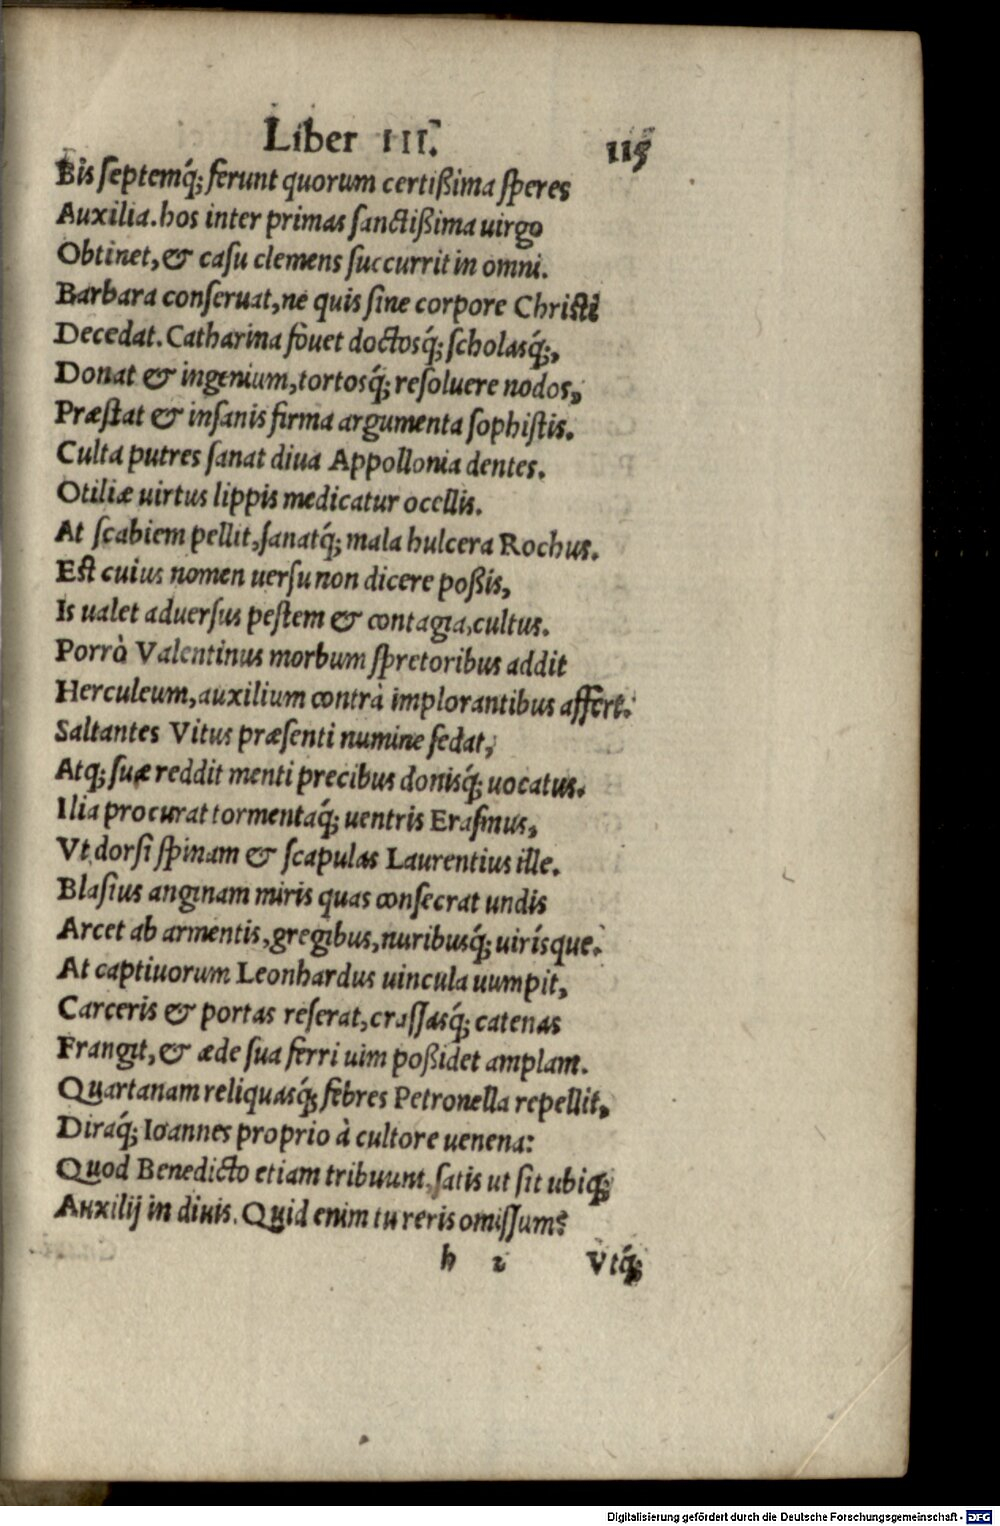 Liber III. 115
Bis septemq́; ferunt quorum certißima speres
Auxilia. hos inter primas sanctißima uirgo
Obtinet, & casu clemens succurrit in omni.
Barbara conseruat, ne quis sine corpore Christi
Decedat. Catharina fouet doctosq́; scholasq́;,
Donat & ingenium, tortosq́; resoluere nodos,
Præstat & insanis firma argumenta sophistis.
Culta putres sanat diua Appollonia dentes.
Otiliæ uirtus lippis medicatur ocellis.
At scabiem pellit, sanatq́; mala hulcera Rochus.
Est cuius nomen uersu non dicere poßis,
Is ualet aduersus pestem & contagia, cultus.
Porrò Valentinus morbum spretoribus addit
Herculeum, auxilium contrà implorantibus affert.
Saltantes Vitus præsenti numine sedat,
Atq; suæ reddit menti precibus donisq́; uocatus.
Ilia procurat tormentaq́; uentris Erasmus,
Vt dorsi spinam & scapulas Laurentius ille.
Blasius anginam miris quas consecrat undis
Arcet ab armentis, gregibus, nuribusq́; uirísque.
At captiuorum Leonhardus uincula uumpit,
Carceris & portas reserat, crassasq́; catenas
Frangit, & æde sua ferri uim poßidet amplam.
Quartanam reliquasq́; febres Petronella repellit,
Diraq́; Ioannes proprio à cultore uenena:
Quod Benedicto etiam tribuunt. satis ut sit ubiq;
Auxilij in diuis. Quid enim tu reris omissum?
h 2 Vtq́;
Digitalisierung gefördert durch die Deutsche Forschungsgemeinschaft - DFG